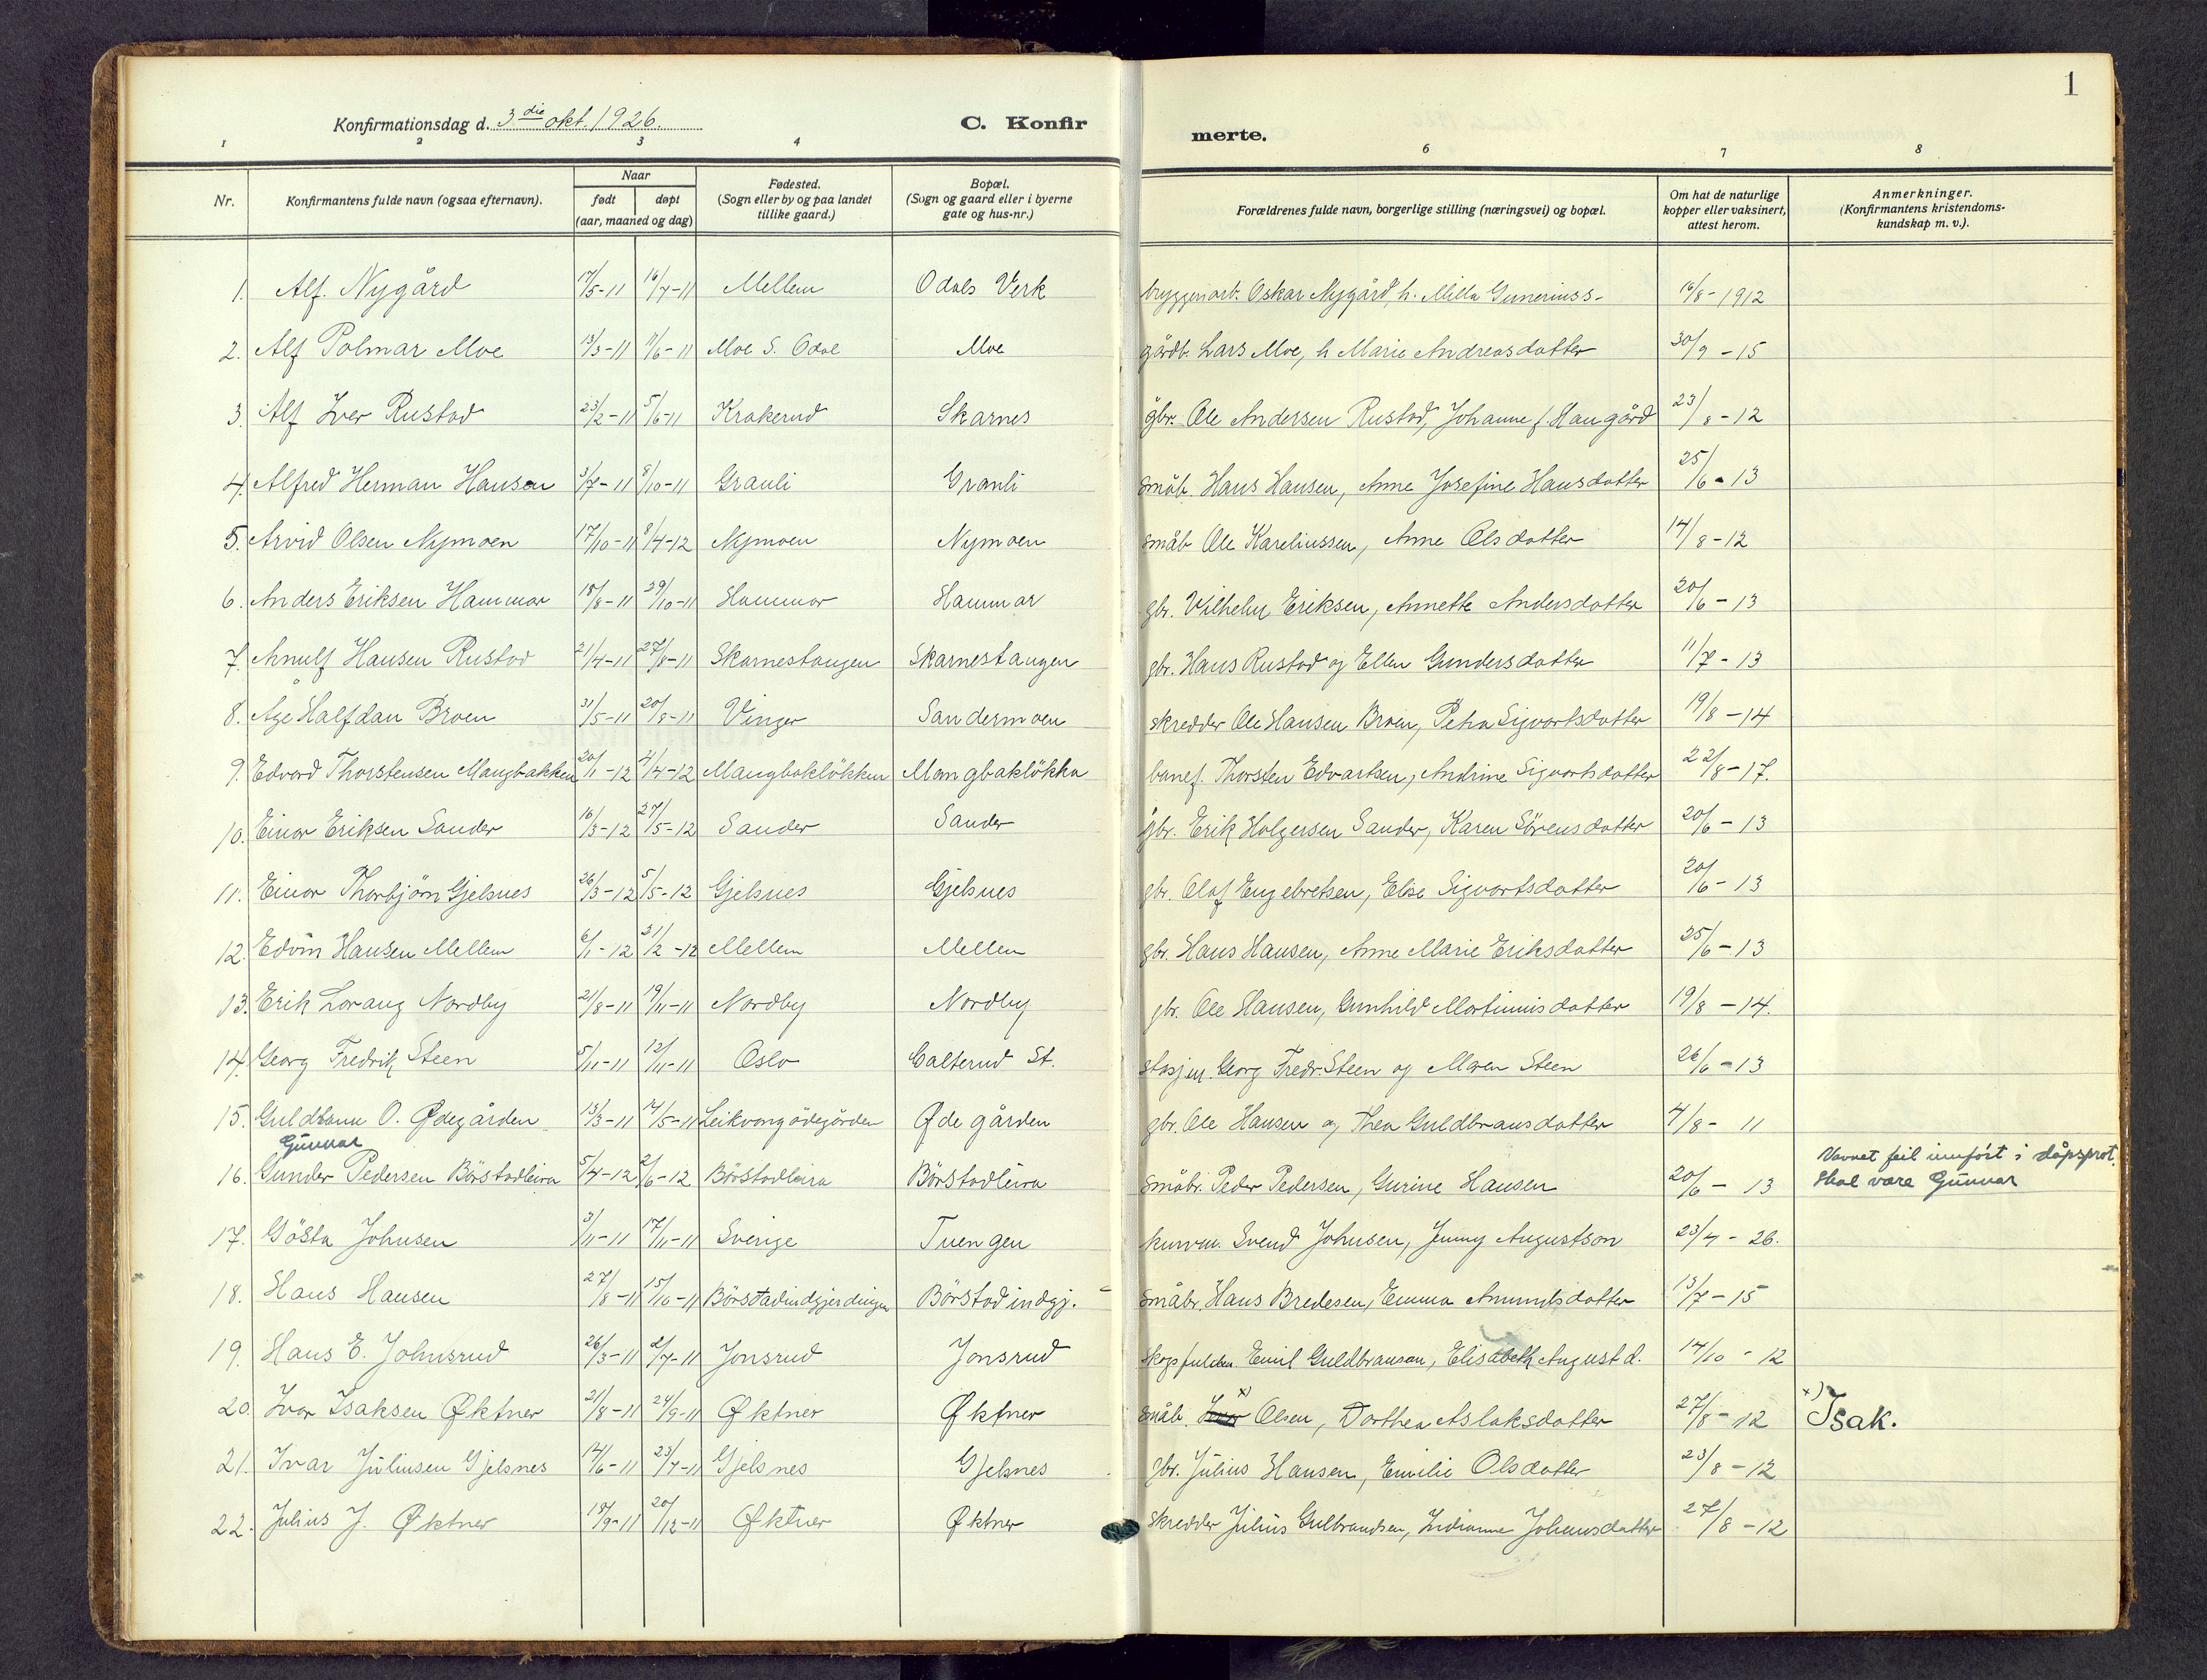 1
Konfirmationsdag d. 3die okt. 1926. C. Konfirmerte.
1 2 3 4 6 7 8
Nr. Konfirmantens fulde navn (ogsaa efternavn). Naar født døpt (aar, maaned og dag) Fødested. (Sogn eller by og paa landet tillike gaard.) Bopæl. (Sogn og gaard eller i byerne gate og hus-nr.) Forældrenes fulde navn, borgerlige stilling (næringsvei) og bopæl. Om hat de naturlige kopper eller vaksinert, attest herom. Anmerkninger. (Konfirmantens kristendoms-kundskap m. v.).
1. Alf. Nygård 17/5-11 16/7-11 Mellem Odals Verk bryggeriarb. Oskar Nygård, h. Milla Guneriuss- 16/8-1912
2. Alf Polmar Moe 13/3-11 11/6-11 Moe S. Odal Moe gårdb. Lars Moe, h Marie Andreasdatter 30/9-15
3. Alf Iver Rustad 23/2-11 5/6-11 Krakerud Skarnes gbr. Ole Andersen Rustad, Johanne f. Haugård 23/8-12
4. Alfred Herman Hansen 3/7-11 8/10-11 Granli Granli småb. Hans Hansen, Anne Josefine Hansdatter 25/6-13
5. Arvid Olsen Nymoen 17/10-11 8/4-12 Nymoen Nymoen småb Ole Kareliussen, Anne Olsdatter 14/8-12
6. Anders Eriksen Hammar 18/8-11 29/10-11 Hammar Hammar gbr. Vilhelm Eriksen, Annette Andersdatter 20/6-13
7. Arnulf Hansen Rustad 21/4-11 27/8-11 Skarnestangen Skarnestangen gbr. Hans Rustad og Ellen Gundersdatter 11/7-13
8. Åge Halfdan Broen 31/5-11 20/8-11 Vinger Sandermoen skredder Ole Hansen Broen, Petra Sigvartsdatter 19/8-14
9. Edvard Thorstensen Mangbakken 20/1-12 4/4-12 Mangbakløkken Mangbakløkka banef. Thorsten Edvartsen, Andrine Sigvartsdatter 22/8-17.
10. Einar Eriksen Sander 16/3-12 27/5-12 Sander Sander gbr. Erik Holgersen Sander, Karen Sörensdatter 20/6-13
11. Einar Thorbjörn Gjelsnes 26/3-12 5/5-12 Gjelsnes Gjelsnes gbr. Olaf Engebretsen, Elise Sigvartsdatter 20/6-13
12. Edvin Hansen Mellem 6/1-12 21/2-12 Mellem Mellem gbr. Hans Hansen, Anne Marie Eriksdatter 25/6-13
13. Erik Lorang Nordby 21/8-11 19/11-11 Nordby Nordby gbr. Ole Hansen, Gunhild Martinusdatter 19/8-14.
14. Georg Fredrik Steen 5/11-11 12/11-11 Oslo Galterud St. stasjm. Georg Fredr. Steen og Maren Steen 26/6-13
15. Guldbrann O. Ødegården 13/3-11 14/5-11 Leikvangödegården Ødegården gbr. Ole Hansen og Thea Guldbransdatter 4/8-11
Gunnar Navnet feil innført i dåpsprot.
16. Gunder Pedersen Börstadleira 5/4-12 2/6-12 Börstadleira Börstadleira småbr. Peder Pedersen, Gurine Hansen 20/6-13 Skal være Gunnar
17. Gösta Johnsen 3/11-11 17/11-11 Sverige Tuengen kurvm. Svend Johnsen, Jenny Augustson 23/4-26.
18. Hans Hansen 27/8-11 15/10-11 Börstadindgjerdingen Börstad indgj. småbr. Hans Bredesen, Emma Amundsdatter 13/7-15
19. Hans E. Johnsrud 26/3-11 2/7-11 Jonsrud Jonsrud Emil Guldbransen, Elisabeth August d. 14/10-12
20. Ivar Isaksen Øktner 21/8-11 24/9-11 Øktner Øktner småb. Iver x) Olsen, Dorthea Aslaksdatter 27/8-12 x) Isak.
21. Ivar Juliusen Gjelsnes 14/6-11 23/7-11 Gjelsnes Gjelsnes gbr. Julius Hansen, Emilie Olsdatter 23/8-12
22. Julius J. Øktner 18/9-11 20/12-11 Øktner Øktner skredder Julius Gulbrandsen, Indianne Johansdatter 27/8-12